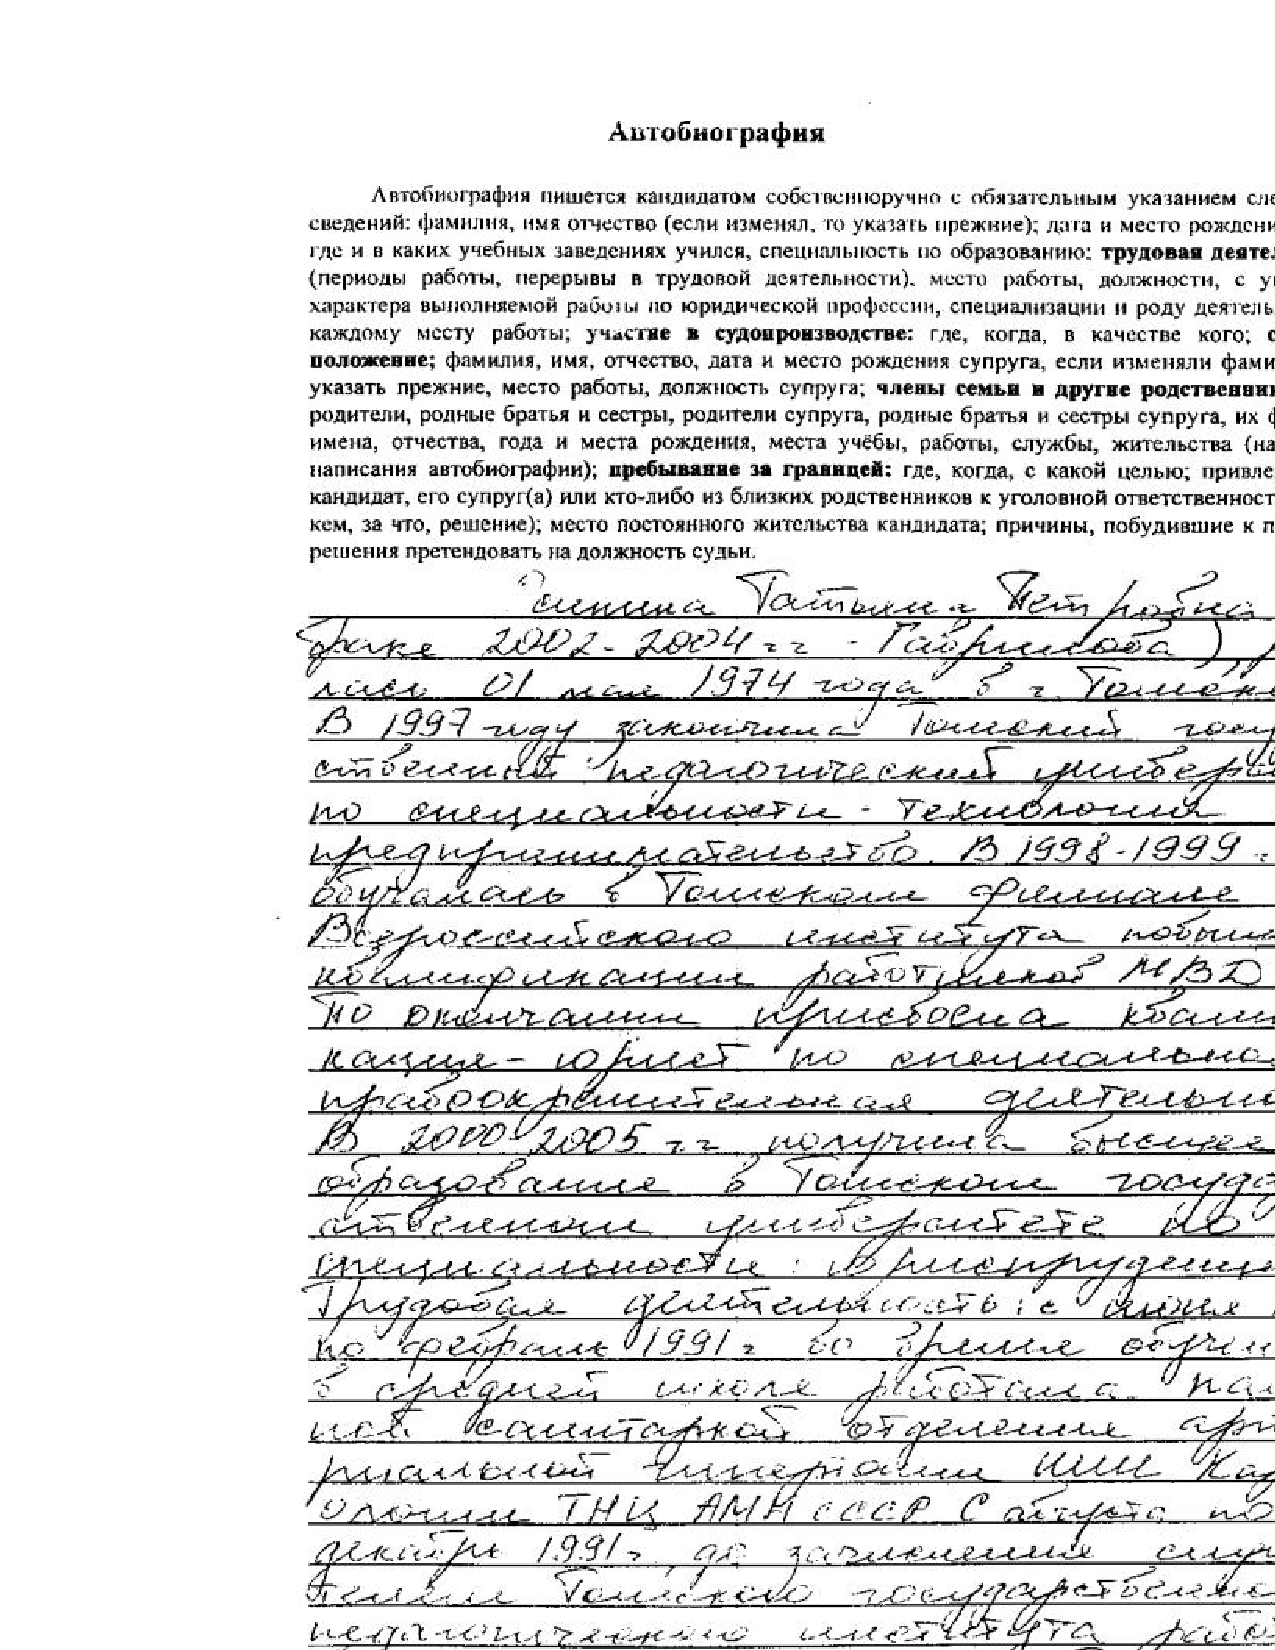 Автобиография
Автобиография пишется кандидатом собственноручно с обязательным указанием сле
сведений: фамилия, имя отчество (если изменял, то указать прежние); дата и место рождени
где и в каких учебных заведениях учился, специальность по образованию; трудовая деяте
(периоды работы, перерывы в трудовой деятельности), место работы, должности, с у
характера выполняемой работы по юридической профессии, специализации и роду деятель
каждому месту работы; участие в судопроизводстве: где, когда, в качестве кого; с
положение; фамилия, имя, отчество, дата и место рождения супруга, если изменяли фами
указать прежние, место работы, должность супруга; члены семьи и другие родственни
родители, родные братья и сестры, родители супруга, родные братья и сестры супруга, их ф
имена, отчества, года и места рождения, места учёбы, работы, службы, жительства (на
написания автобиографии); пребывание за границей: где, когда, с какой целью; привле
кандидат, его супруг(а) или кто-либо из близких родственников к уголовной ответственност
кем, за что, решение); место постоянного жительства кандидата; причины, побудившие к п
решения претендовать на должность судьи.
Татьяна Петровна
браке 2002-2004 гг - Гаврилова),
лась 01 мая 1974 года в г. Томск
В 1997 году закончила Томский госуд
ственный педагогический универси
по специальности - технология
предпринимательство. В 1998-1999 г
обучалась в Томском филиале
Всероссийского института повыш
квалификации работников МВД
По окончании присвоена квали
кация - юрист по специально
правоохранительная деятельно
В 2000-2005 гг получила высшее
образование в Томском госуда
ственном университете по
специальности: юриспруденц
Трудовая деятельность: с июня
по февраль 1991 г во время обучен
в средней школе работала пал
ной санитаркой отделения арте
риальной гипертонии НИИ Кар
ологии ТНЦ АМН СССР С августа по
декабрь 1991 г, до зачисления слуш
телем Томского государственно
педагогического института рабо